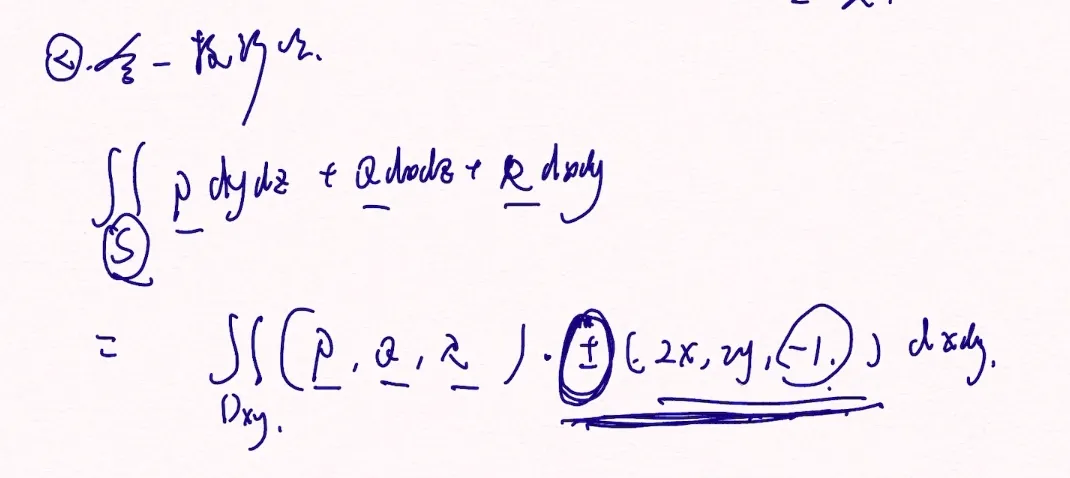 ②. 合一投影法.
∬_S P dydz + Q dxdz + R dxdy
= ∬_{Dxy.} (P, Q, R) · ± (2x, 2y, -1.) dxdy.